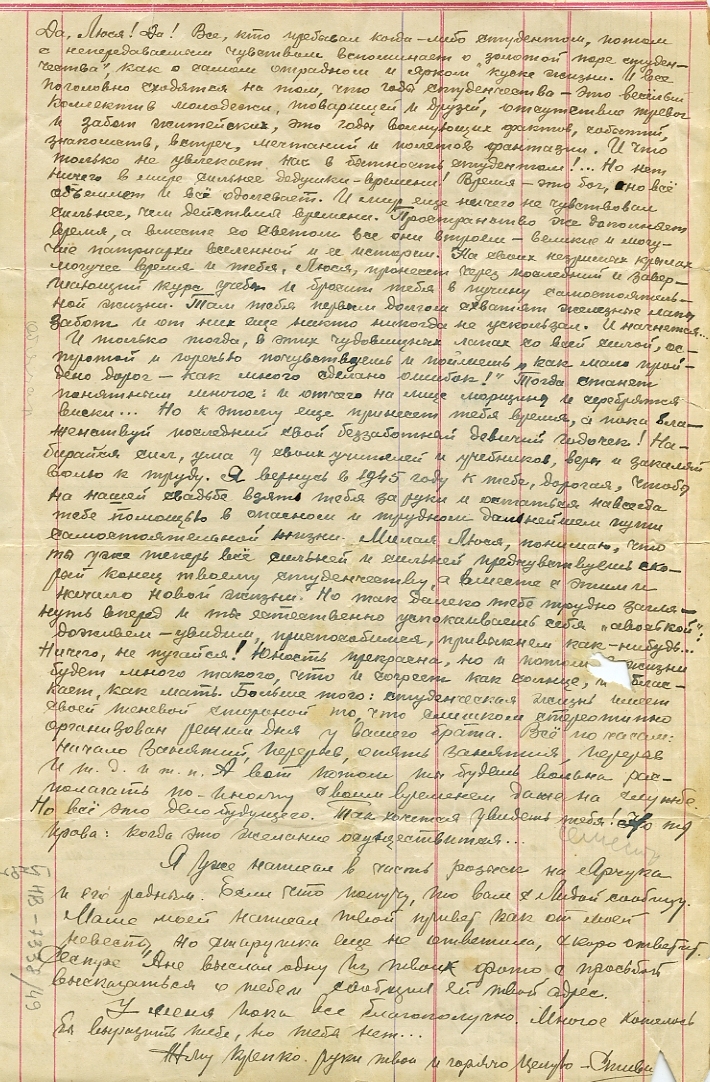 Да, Люся! Да! Все, кто пребывал когда-либо студентом, потом
с непередаваемым чувством вспоминает о „золотой поре студен-
чества", как о самом отрадном и ярком куске жизни. И все
поголовно сходятся на том, что годы студенчества – это весёлый
коллектив молодежи, товарищей и друзей, отсутствие тревог
и забот житейских, это годы волнующих фактов, событий,
знакомств, встреч, мечтаний и полетов фантазии. И что
только не увлекает нас в бытность студентом!... Но нет
ничего в мире сильнее дедушки-времени! Время – это бог, оно всё
объемлет и всё одолевает. И мир еще ничего не чувствовал
сильнее, чем действия времени. Пространство же дополняет
время, а вместе со светом все они втроем – великие и могу-
чие патриархи вселенной и ее истории. На своих незримых крыльях
могучее время и тебя, Люся, пронесет через последний и завер-
шающий курс учебы и бросит тебя в пучину самостоятель-
ной жизни. Там тебя первым долгом схватят железные лапы
забот и от них еще никто никогда не ускользал. И начнется...
И только тогда, в этих чудовищных лапах со всей силой, ос-
тротой и горечью почувствуешь и поймешь „как мало прой-
дено дорог – как много сделано ошибок!" Тогда станет
понятным многое: и отчего на лице морщины и серебрятся
виски... Но к этому еще принесет тебя время, а пока бла-
женствуй последний свой беззаботный девичий годочек! На-
бирайся сил, ума у своих учителей и учебников, верь и закаляй
волю к труду. Я вернусь в 1945 году к тебе, дорогая, чтобы
на нашей свадьбе взять тебя за руки и остаться навсегда
тебе помощью в опасном и трудном дальнейшем пути
самостоятельной жизни. Милая Люся, понимаю, что
ты уже теперь всё сильней и сильней предчувствуешь ско-
рый конец твоему студенчеству, а вместе с этим и
начало новой жизни. Но так далеко тебе трудно загля-
нуть вперед и ты естественно успокаиваешь себя „авоськой":
доживем – увидим, приспособимся, привыкнем как-нибудь...
Ничего, не пугайся! Юность прекрасна, но и потом жизни
будет много такого, что и согреет как солнце, и
кает, как мать. Больше того: студенческая жизнь имеет
своей теневой стороной то что слишком стереотипно
организован режим дня у вашего брата. Всё по часам:
начало занятий, перерыв, опять занятия, перерыв
и т. д. и т. п. А вот потом ты будешь вольна рас-
полагать по-иному своим временем даже на службе.
Но всё это дело будущего. Так хочется увидеть тебя! Но ты
права: когда это желание осуществится...
Я уже написал в часть розыск на Ярчука
и его родным. Если что получу, то вам с Лидой сообщу.
Маме моей написал твой привет как от моей
невесты, но старушка еще не ответила, скоро ответит.
Сестре Яне выслал одну из твоих фото с просьбой
высказаться о тебе и сообщил ей твой адрес.
У меня пока все благополучно. Многое хотелось
бы выразить тебе, но тебя нет...
Жму крепко руки твои и горячо целую –
НВ – 7358/49